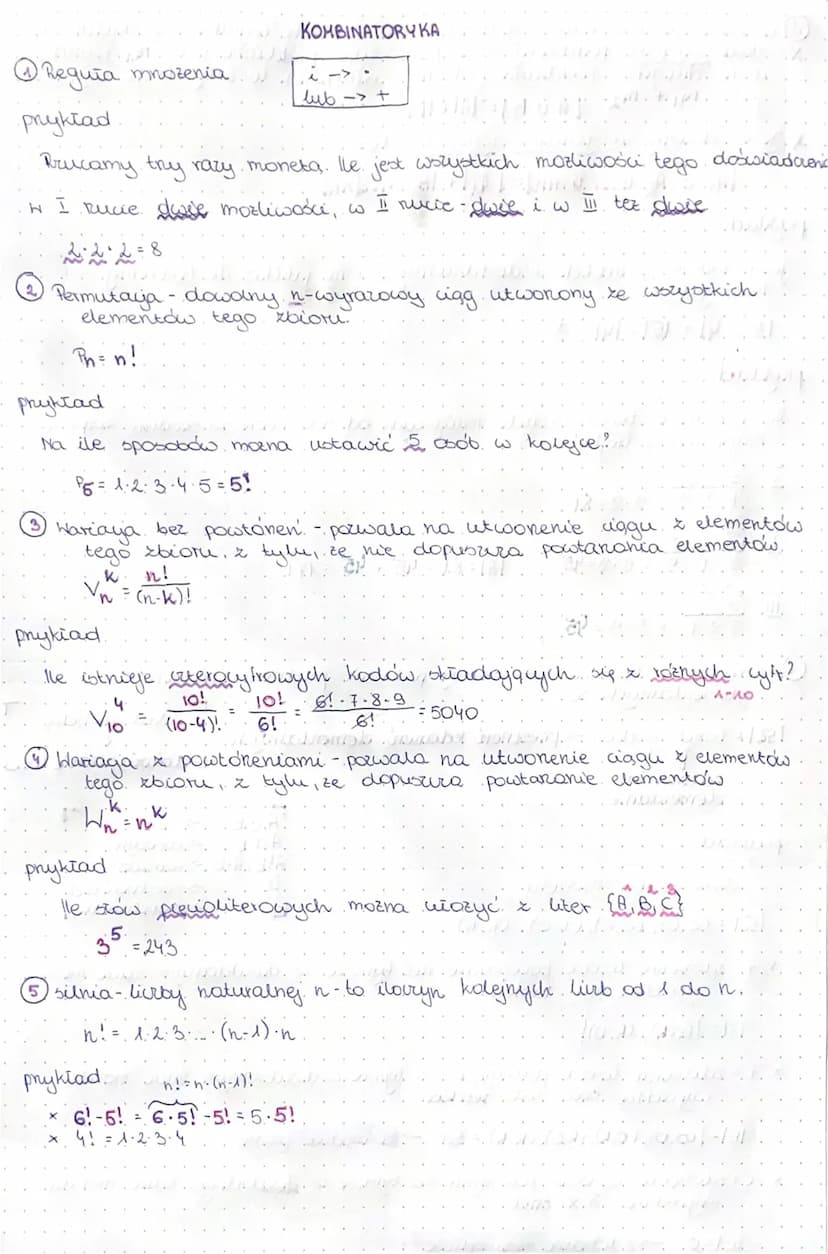 KOMBINATORYKA
① Reguła mnożenia
i -> ·
lub -> +
przykład
Rzucamy trzy razy monetą. Ile jest wszystkich możliwości tego doświadczenia
w I rzucie dwie możliwości, w II rzucie - dwie i w III też dwie
2·2·2=8
② Permutacja - dowolny n-wyrazowy ciąg utworzony ze wszystkich
elementów tego zbioru.
Pn = n!
przykład
Na ile sposobów można ustawić 5 osób w kolejce?
P5 = 1·2·3·4·5 = 5!
③ Wariacja bez powtórzeń - pozwala na utworzenie ciągu z elementów
tego zbioru, z tylu, że nie dopuszcza powtarzania elementów.
V_n^k = n!/(n-k)!
przykład
Ile istnieje czterocyfrowych kodów, składających się z różnych cyfr?
1-10
V_10^4 = 10!/(10-4)! = 10!/6! = 6!·7·8·9/6! = 5040
④ Wariacja z powtórzeniami - pozwala na utworzenie ciągu z elementów
tego zbioru, z tylu, że dopuszcza powtarzanie elementów
W_n^k = n^k
przykład
1 2 3
Ile słów pięcioliterowych można ułożyć z liter {A, B, C}
3^5 = 243
⑤ silnia - liczby naturalnej n - to iloczyn kolejnych liczb od 1 do n.
n! = 1·2·3·...·(n-1)·n
przykład
n! = n·(n-1)!
× 6!-5! = 6·5!-5! = 5·5!
× 4! = 1·2·3·4